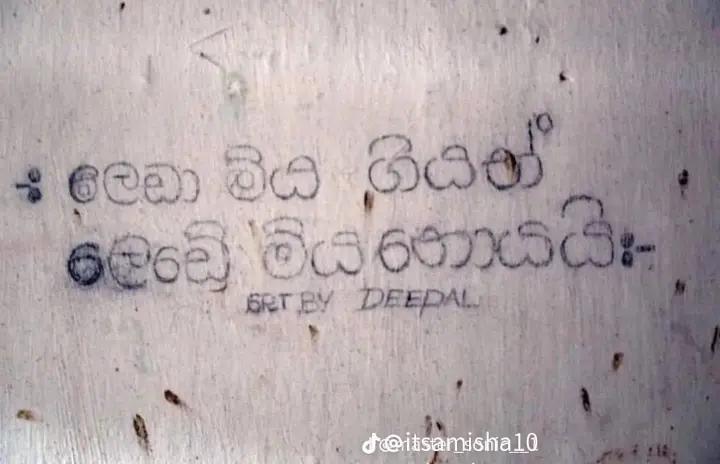 -: ලෙඩා මිය ගියත්
ලෙඩ්රේ මිය නොයයි:-
ART BY DEEPAL
@itsamisha10